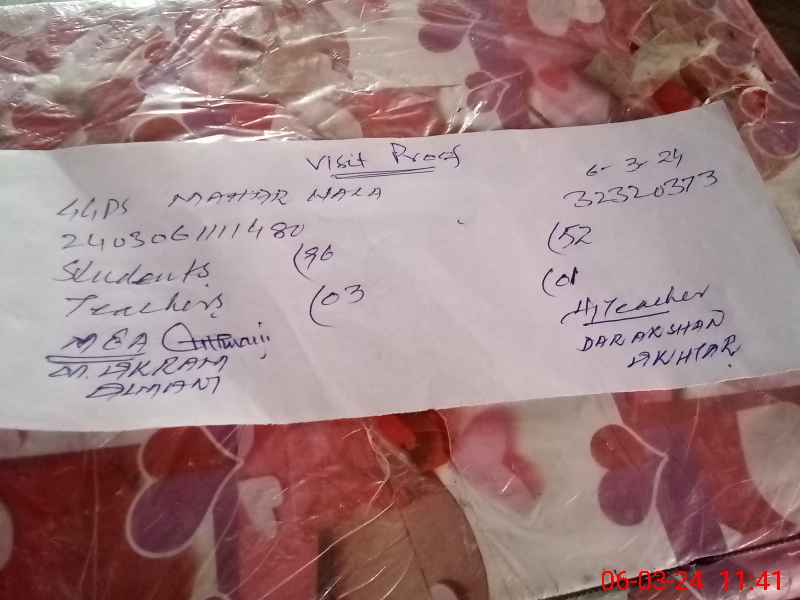 Visit Proof
6-3-24
GGPS MAHAR WALA 32320373
2403061111480
Students (96 (52
Teachers (03 (01
MEA
M. AKRAM
ALMANI
H/Teacher
DARAKSHAN
AKHTAR
06-03-24 11:41